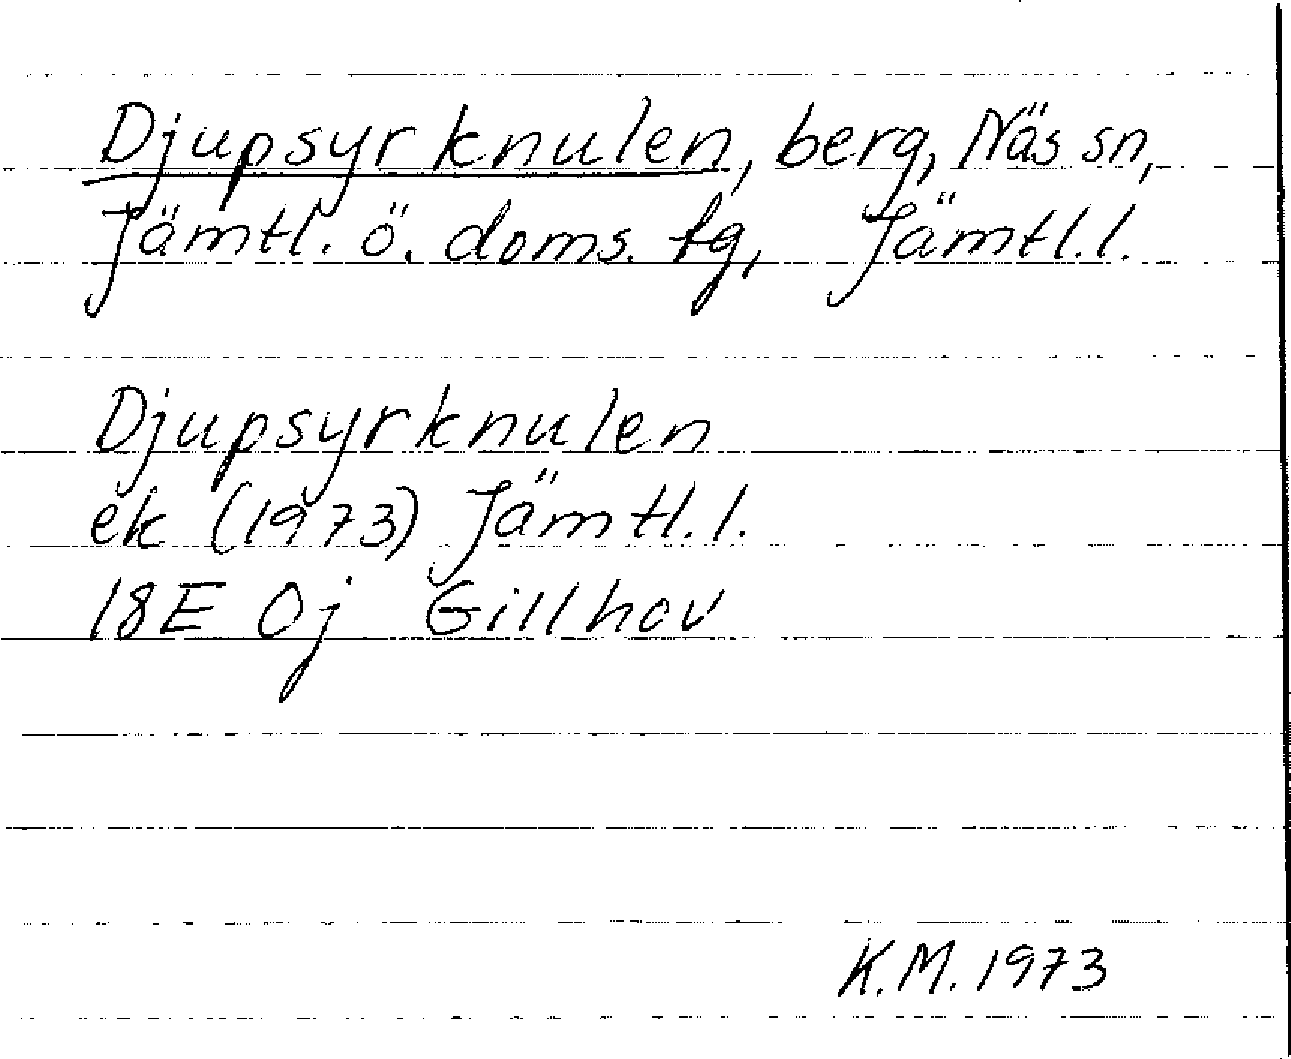 Djupsyrknulen, berg, Näs sn,
Jämtl. ö. doms. tg, Jämtl.l.
Djupsyrknulen
ek (1973) Jämtl.l.
18E 0j Gillhov
K.M. 1973